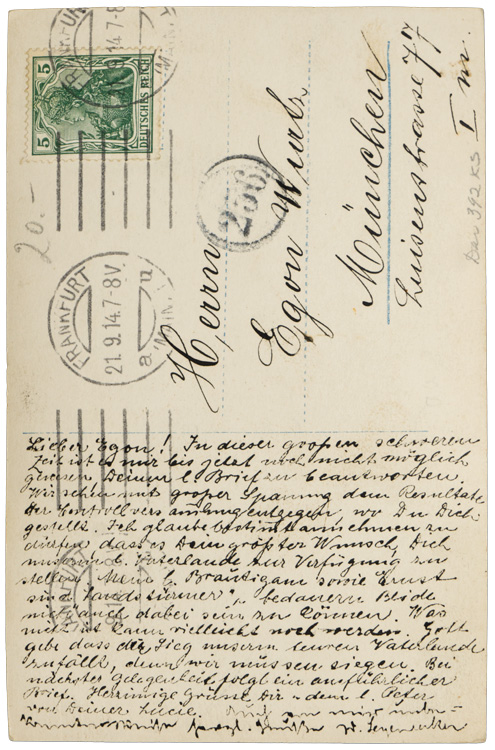 5 5
DEUTSCHES REICH
FRANKFURT
21.9.14.7-8V.
a
256
20.-
Herrn
Egon
München
Luisenstrasse 77
I
Lieber Egon! In dieser großen schweren
Zeit ist es mir bis jetzt noch nicht möglich
gewesen Deinen l. Brief zu beantworten.
Wir sehen mit großer Spannung dem Resultate
der Controll entgegen, wo Du Dich
gestellt. Ich glaube bestimmt annehmen zu
dürfen dass es Dein größter Wunsch, Dich
unserem l. Vaterlande zur Verfügung zu
stellen. Mein l. Bräutigam sowie Ernst
sind Landstürmer, bedauern Beide
nicht auch dabei sein zu können. Was
nicht ist kann vielleicht noch werden. Gott
gebe dass der Sieg unserm teuren Vaterlande
zufällt, denn wir müssen siegen. Bei
nächster Gelegenheit folgt ein ausführlicher
Brief. Herzinnige Grüsse Dir u. dem l. Peter
von Deiner Lucie. Auch von mir